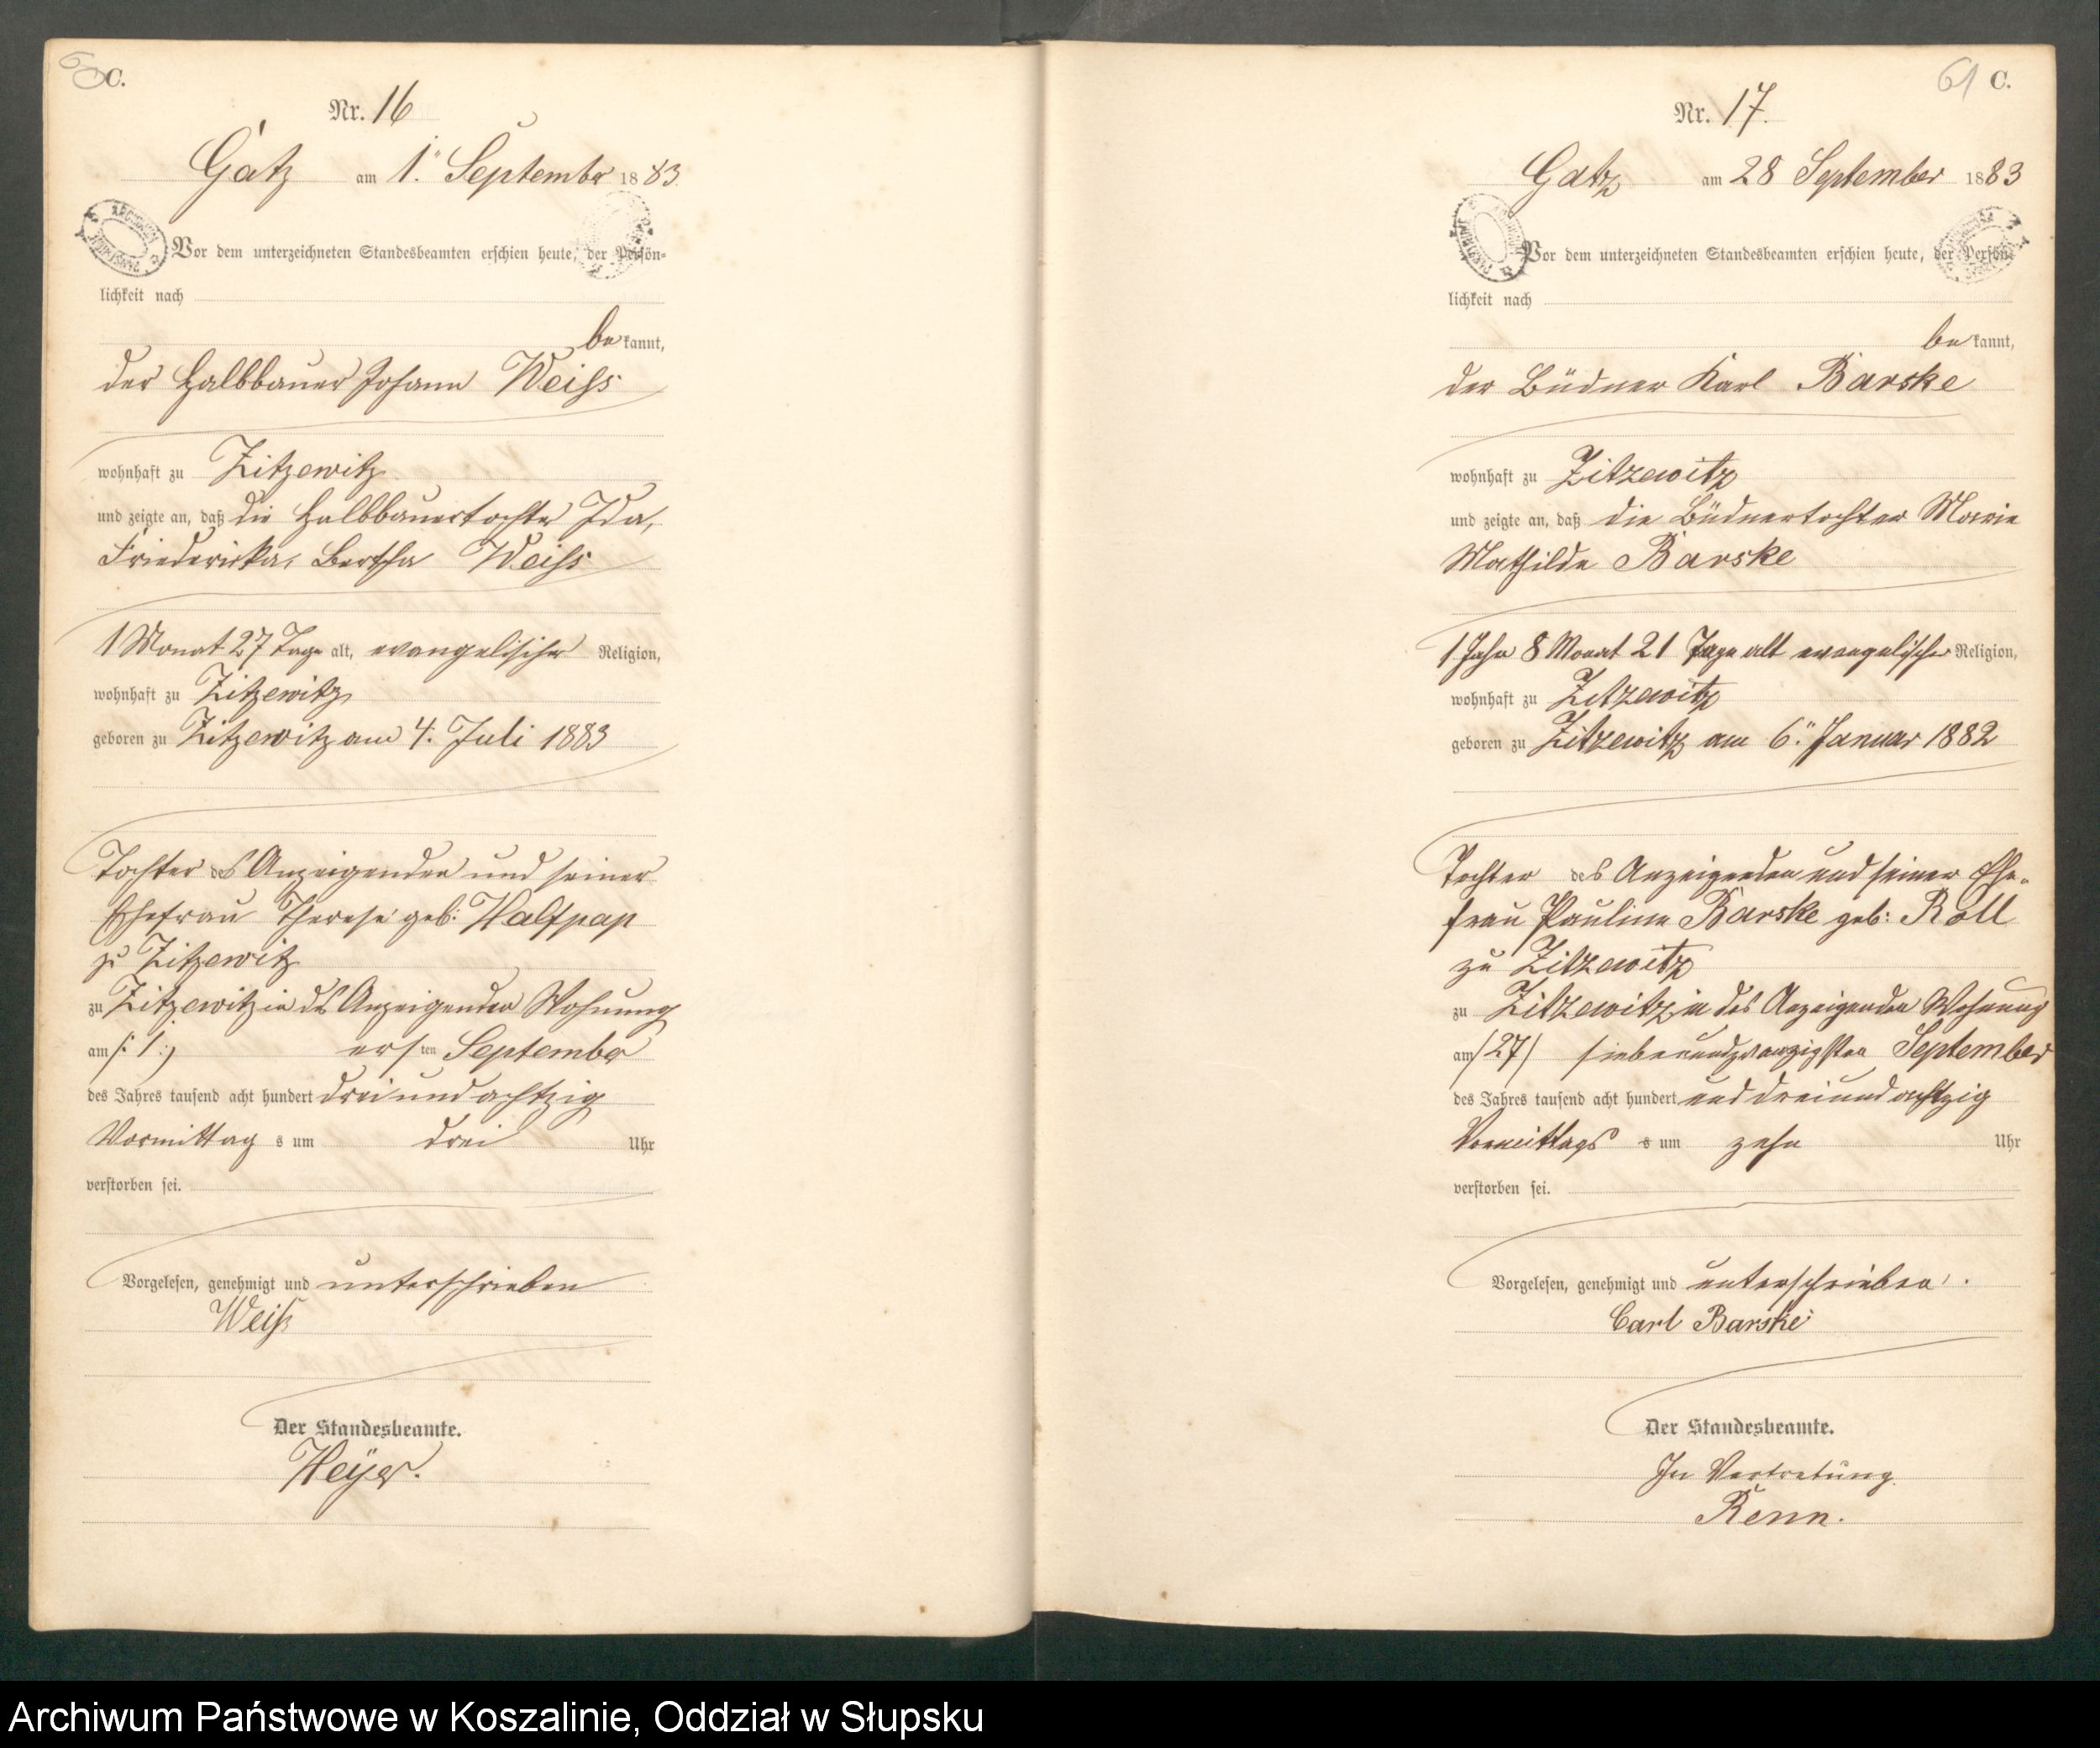 60 C.
Nr. 16
Gatz am 1. September 1883
Vor dem unterzeichneten Standesbeamten erschien heute, der Persön-
lichkeit nach
bekannt,
der Halbbauer Johann Weiss
wohnhaft zu Zitzewitz
und zeigte an, daß die Halbbauertochter Ida,
Friedericka, Bertha Weiss
1 Monat 27 Tage alt, evangelischer Religion,
wohnhaft zu Zitzewitz
geboren zu Zitzewitz am 4. Juli 1883
Tochter des Anzeigenden und seiner
Ehefrau Therese geb. Halfpap
zu Zitzewitz
zu Zitzewitz in des Anzeigenden Wohnung
am /: 1 :/ ersten September
des Jahres tausend acht hundert dreiundachtzig
Vormittags um drei Uhr
verstorben sei.
Vorgelesen, genehmigt und unterschrieben
Weiß
Der Standesbeamte.
Heyer.
61 C.
Nr. 17.
Gatz am 28 September 1883
Vor dem unterzeichneten Standesbeamten erschien heute, der Persön-
lichkeit nach
bekannt,
der Büdner Karl Barske
wohnhaft zu Zitzewitz
und zeigte an, daß die Büdnertochter Marie
Mathilde Barske
1 Jahr 8 Monat 21 Tage alt evangelischer Religion,
wohnhaft zu Zitzewitz
geboren zu Zitzewitz am 6. Januar 1882
Tochter des Anzeigenden und seiner Ehe-
frau Pauline Barske geb: Roll
zu Zitzewitz
zu Zitzewitz in des Anzeigenden Wohnung
am /27/ siebenundzwanzigsten September
des Jahres tausend acht hundert und dreiundachtzig
Vormittags s um zehn Uhr
verstorben sei.
Vorgelesen, genehmigt und unterschrieben.
Carl Barske
Der Standesbeamte.
In Vertretung
Renn.
Archiwum Państwowe w Koszalinie, Oddział w Słupsku